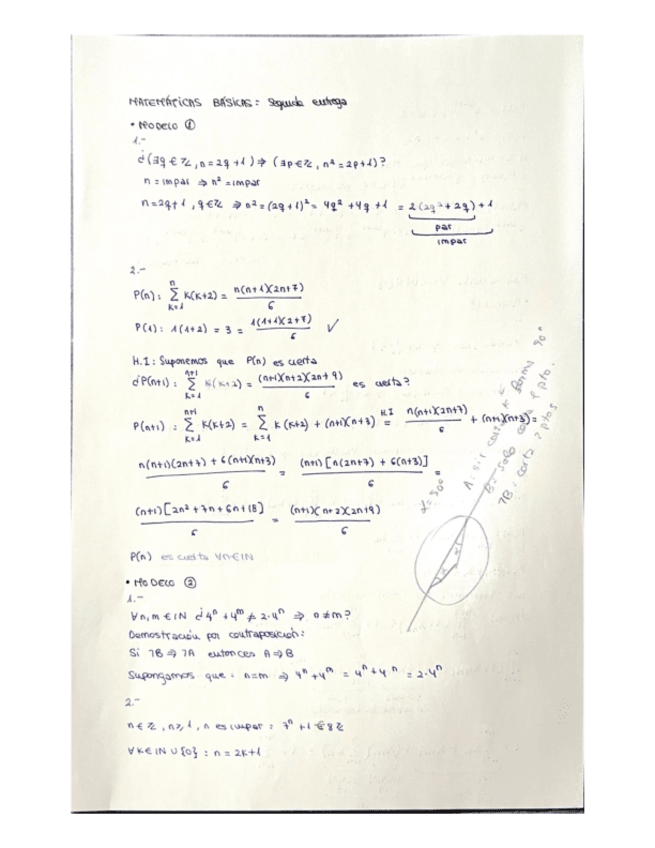 MATEMÁTICAS BÁSICAS: Segunda entrega
• MODELO ①
1.-
¿(∃q∈ℤ, n=2q+1) ⇒ (∃p∈ℤ, n²=2p+1)?
n=impar ⇒ n²=impar
n=2q+1, q∈ℤ ⇒ n²=(2q+1)²= 4q²+4q+1 = 2(2q²+2q)+1
par
impar
2.-
P(n): ∑_{k=1}^{n} k(k+2) = n(n+1)(2n+7)/6
P(1): 1(1+2) = 3 = 1(1+1)(2+7)/6 ✓
H.I: Suponemos que P(n) es cierta
¿P(n+1): ∑_{k=1}^{n+1} k(k+2) = (n+1)(n+2)(2n+9)/6 es cierta?
P(n+1): ∑_{k=1}^{n+1} k(k+2) = ∑_{k=1}^{n} k(k+2) + (n+1)(n+3) =^{H.I} n(n+1)(2n+7)/6 + (n+1)(n+3) =
n(n+1)(2n+7) + 6(n+1)(n+3)/6 = (n+1)[n(2n+7) + 6(n+3)]/6 =
(n+1)[2n²+7n+6n+18]/6 = (n+1)(n+2)(2n+9)/6
P(n) es cierta ∀n∈ℕ
• MODELO ②
1.-
∀n,m∈ℕ ¿4ⁿ+4ᵐ≠2·4ⁿ ⇒ n≠m?
Demostración por contraposición:
Si ⅂B⇒⅂A entonces A⇒B
Supongamos que: n=m ⇒ 4ⁿ+4ᵐ = 4ⁿ+4ⁿ = 2·4ⁿ
2.-
n∈ℤ, n≥1, n es impar: 7ⁿ+1∈8ℤ
∀k∈ℕ∪{0}: n=2k+1
A: si r corta
B: solo corta 1 pto.
⅂B: corta 2 ptos